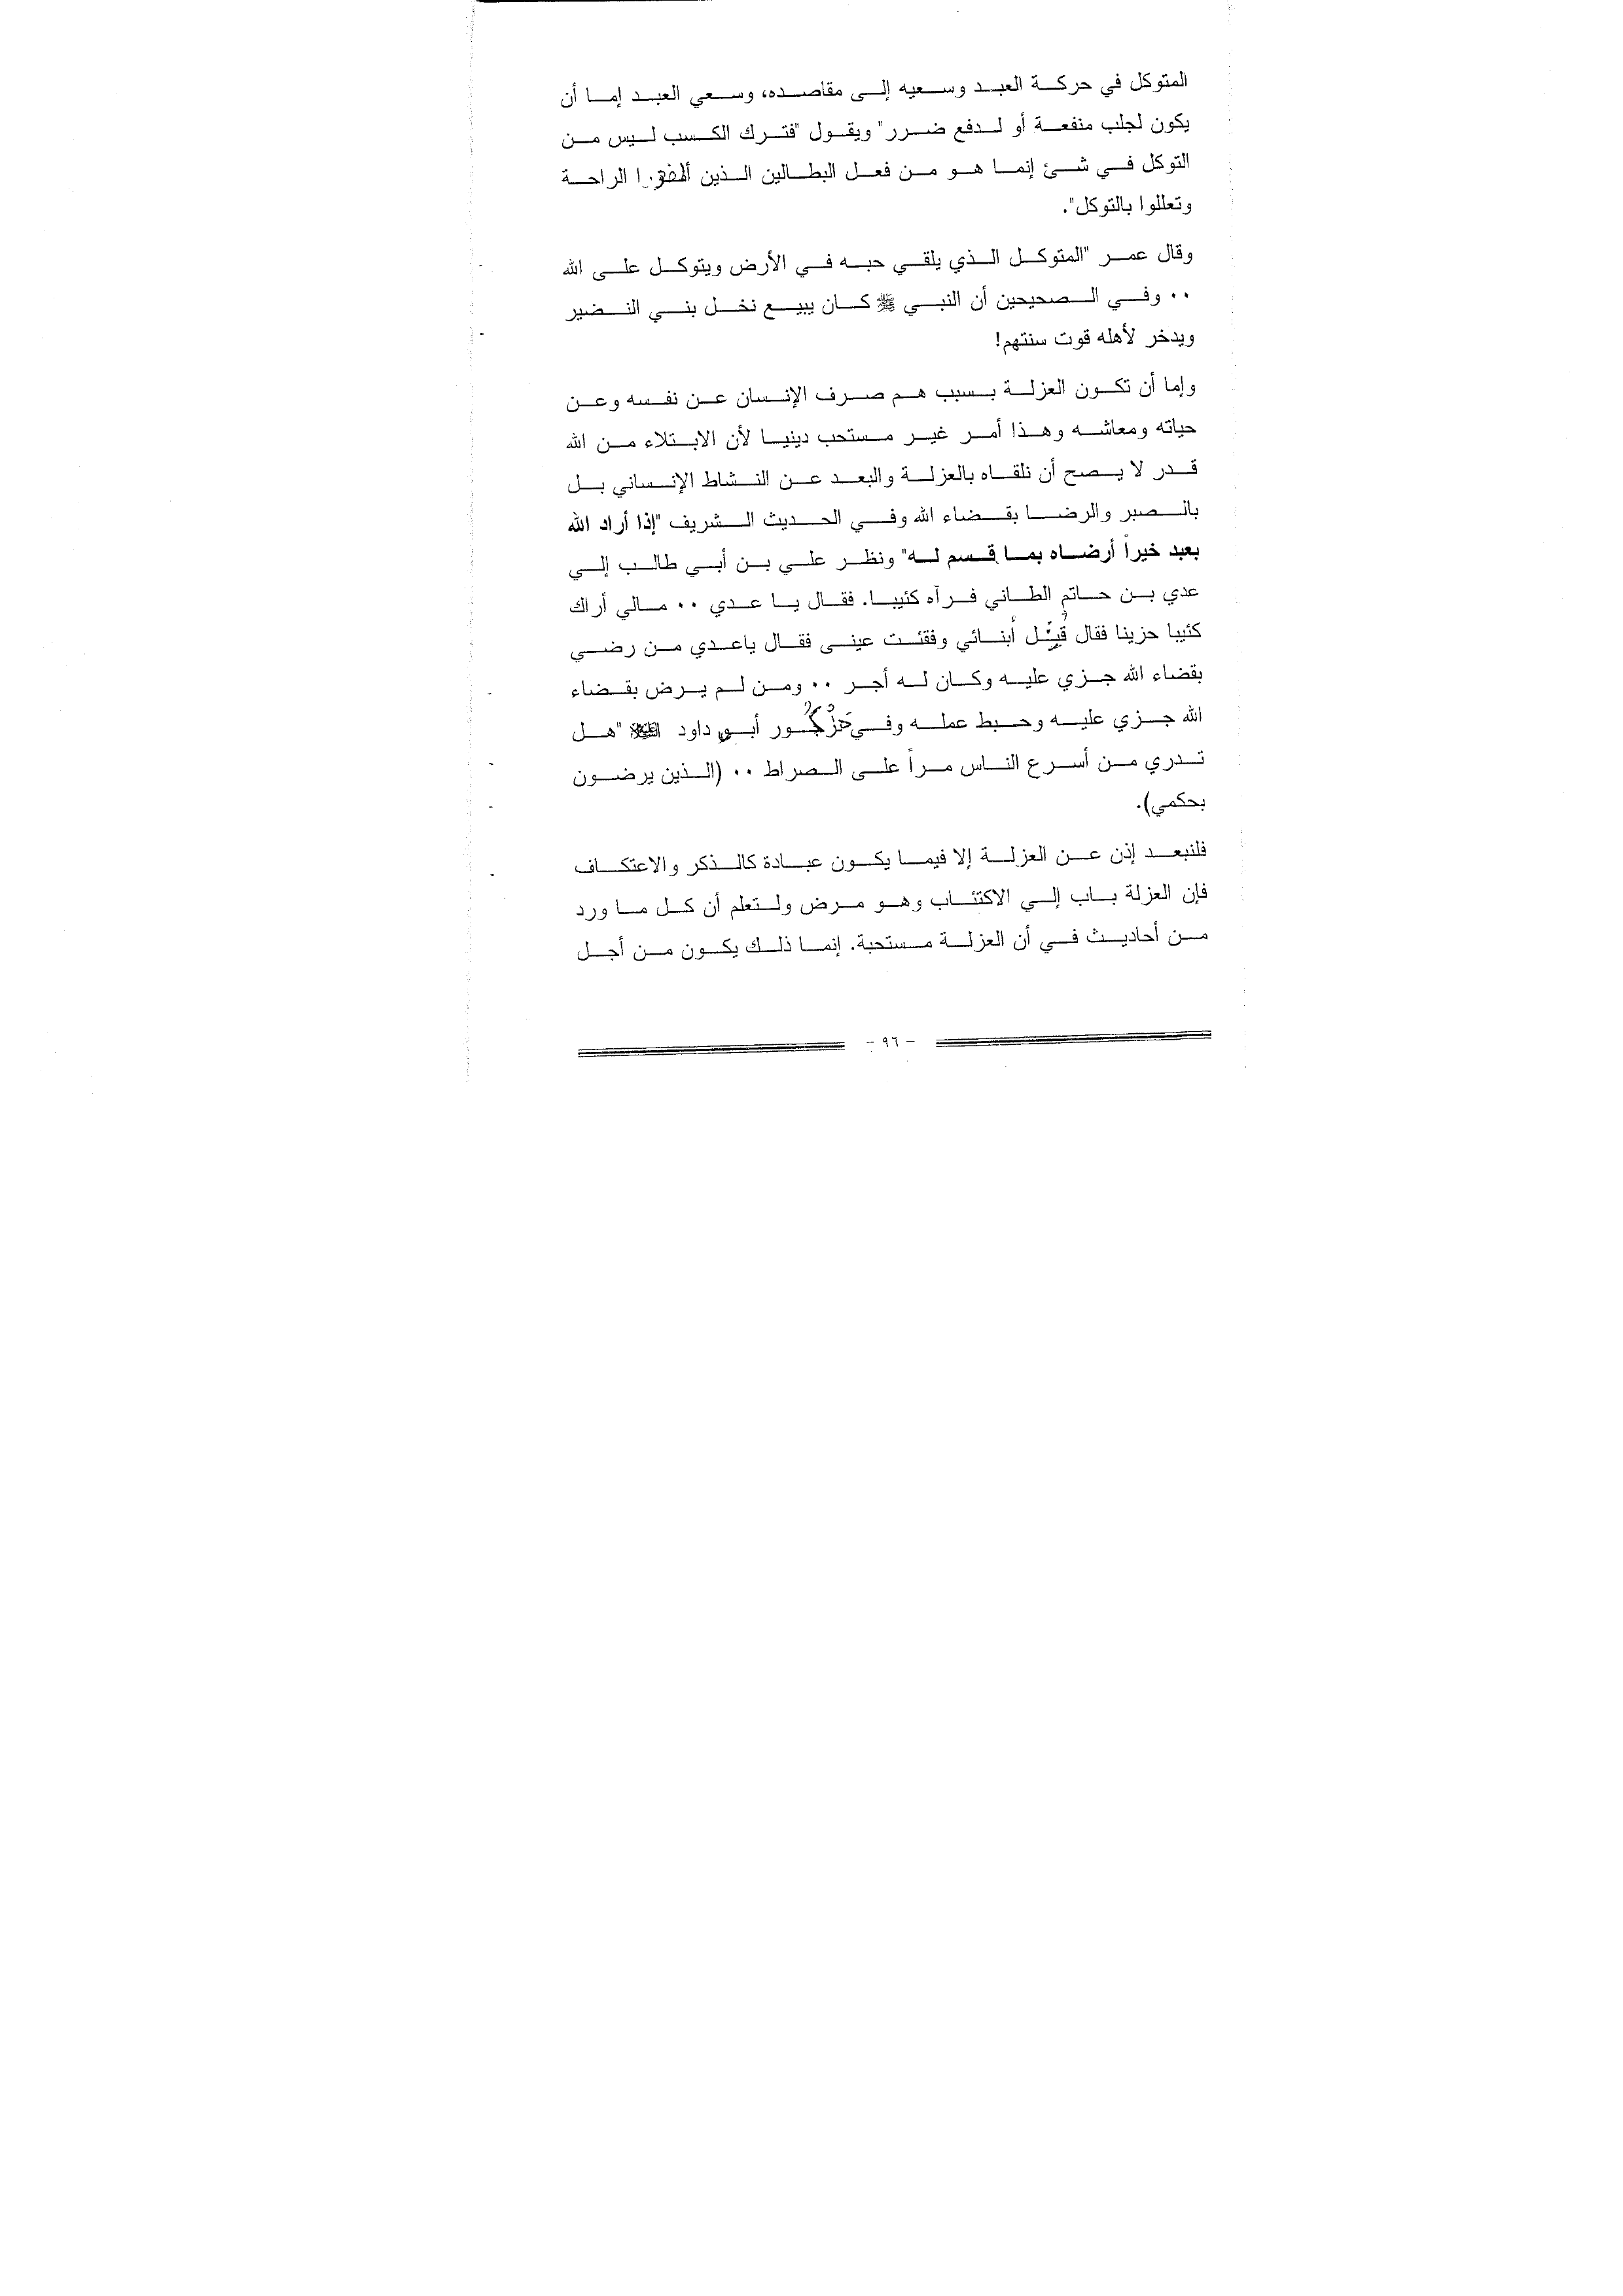 المتوكل في حركة العبد وسعيه إلى مقاصده، وسعي العبد إما أن
يكون لجلب منفعة أو لدفع ضرر" ويقول "فترك الكسب ليس من
التوكل في شئ إنما هو من فعل البطالين الذين الراحة
وتعللوا بالتوكل".
وقال عمر "المتوكل الذي يلقي حبه في الأرض ويتوكل على الله
٠٠ وفي الصحيحين أن النبي ﷺ كان يبيع نخل بني النضير
ويدخر لأهله قوت سنتهم!
وإما أن تكون العزلة بسبب هم صرف الإنسان عن نفسه وعن
حياته ومعاشه وهذا أمر غير مستحب دينيا لأن الابتلاء من الله
قدر لا يصح أن نلقاه بالعزلة والبعد عن النشاط الإنساني بل
بالصبر والرضا بقضاء الله وفي الحديث الشريف "إذا أراد الله
بعبد خيراً أرضاه بما قسم له" ونظر علي بن أبي طالب إلي
عدي بن حاتم الطاني فرآه كئيبا. فقال يا عدي ٠٠ مالي أراك
كئيبا حزينا فقال قُتِل أبنائي وفقئت عينى فقال ياعدي من رضي
بقضاء الله جزي عليه وكان له أجر ٠٠ ومن لم يرض بقضاء
الله جزي عليه وحبط عمله وفي أبي داود "هل
تدري من أسرع الناس مراً على الصراط ٠٠ (الذين يرضون
بحكمي).
فلنبعد إذن عن العزلة إلا فيما يكون عبادة كالذكر والاعتكاف
فإن العزلة باب إلي الاكتئاب وهو مرض ولتعلم أن كل ما ورد
من أحاديث في أن العزلة مستحبة. إنما ذلك يكون من أجل
- ٩٦ -